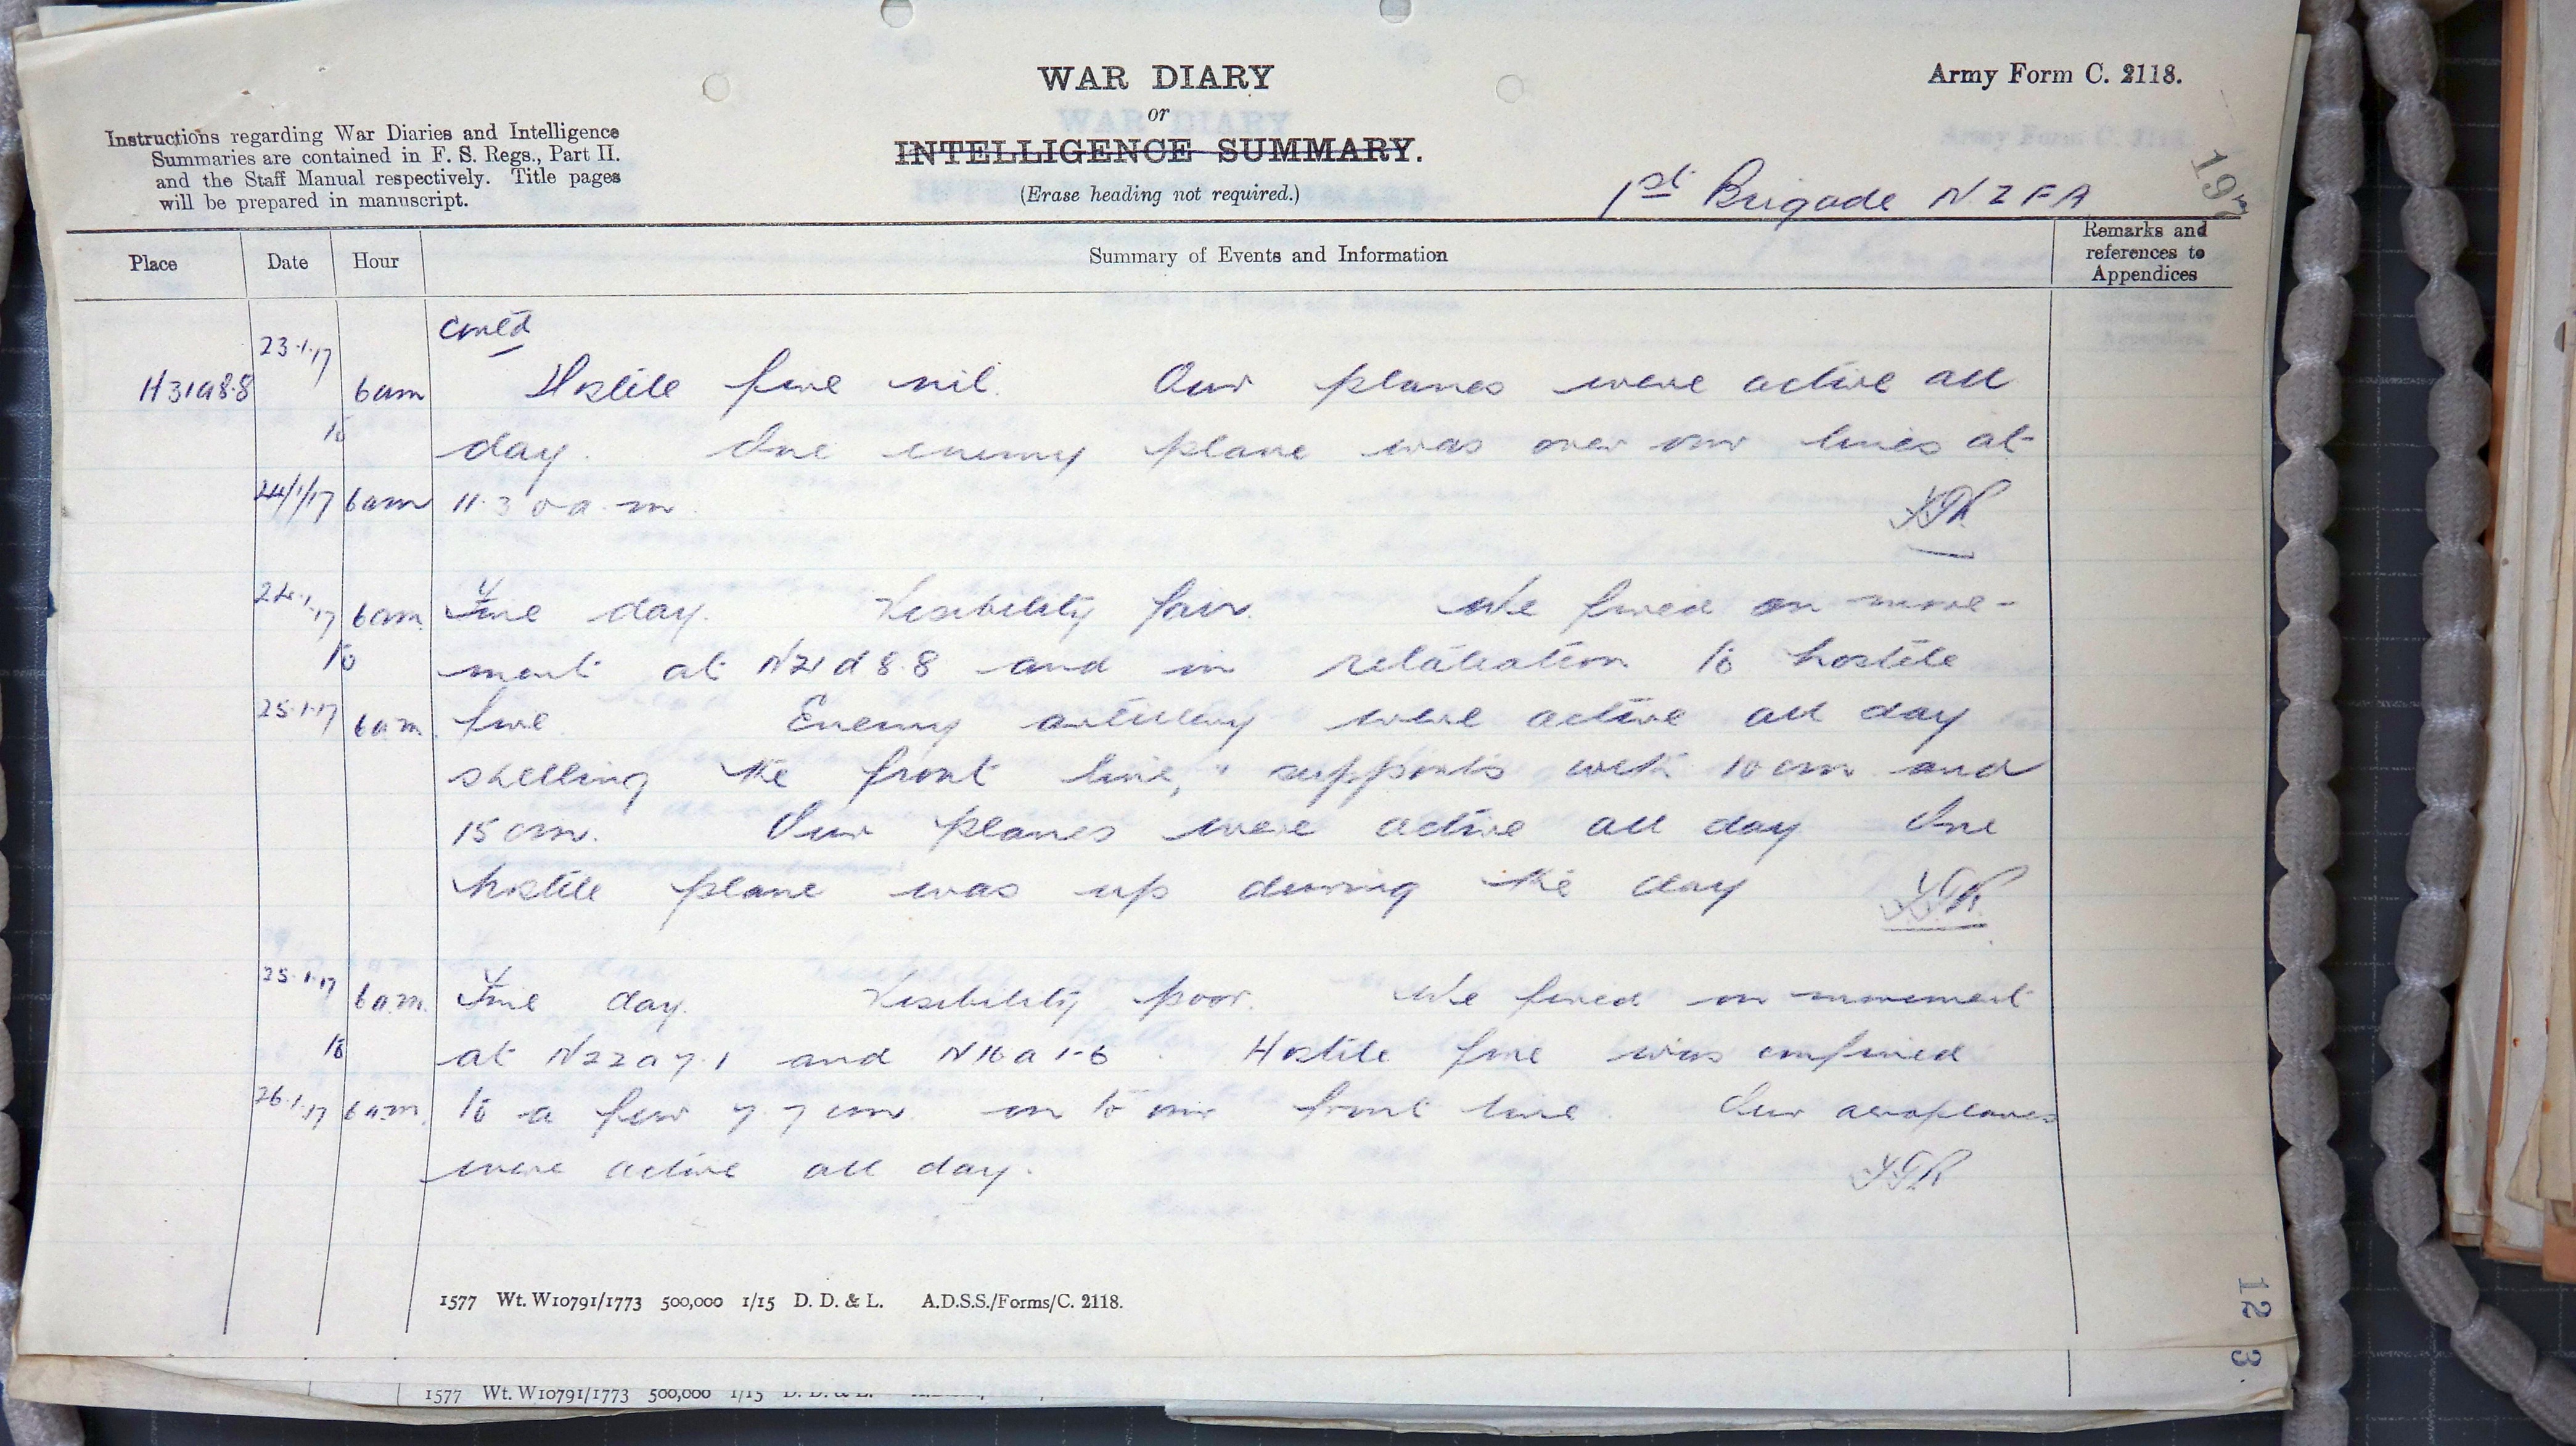 WAR DIARY
or
INTELLIGENCE SUMMARY.
(Erase heading not required.)
Army Form C. 2118.
Instructions regarding War Diaries and Intelligence
Summaries are contained in F. S. Regs., Part II.
and the Staff Manual respectively. Title pages
will be prepared in manuscript.
1st Brigade NZFA
197
Place Date Hour Summary of Events and Information Remarks and
references to
Appendices
contd
23.1.17
H31a8.8 6am Hostile fire nil. Our planes were active all
to day. One enemy plane was over our lines at
24/1/17 6am 11.30 a.m.
24.1.17 6am. Fine day. Visibility fair. We fired on move-
to ment at N21d8.8 and in retaliation to hostile
25.1.17 6am. fire Enemy artillery were active all day
shelling the front line, " supports with 10cm and
15cm. Our planes were active all day One
hostile plane was up during the day
25.1.17 6a.m. Fine day. Visibility poor. We fired on movement
to at N22a7.1 and N16a1.6. Hostile fire was confined
26.1.17 6am. to a few 77cm on to our front line. Our aeroplanes
were active all day.
1577 Wt. W10791/1773 500,000 1/15 D. D. & L. A.D.S.S./Forms/C. 2118.
12
3
1577 Wt. W10791/1773 500,000 1/15 D. D. & L.